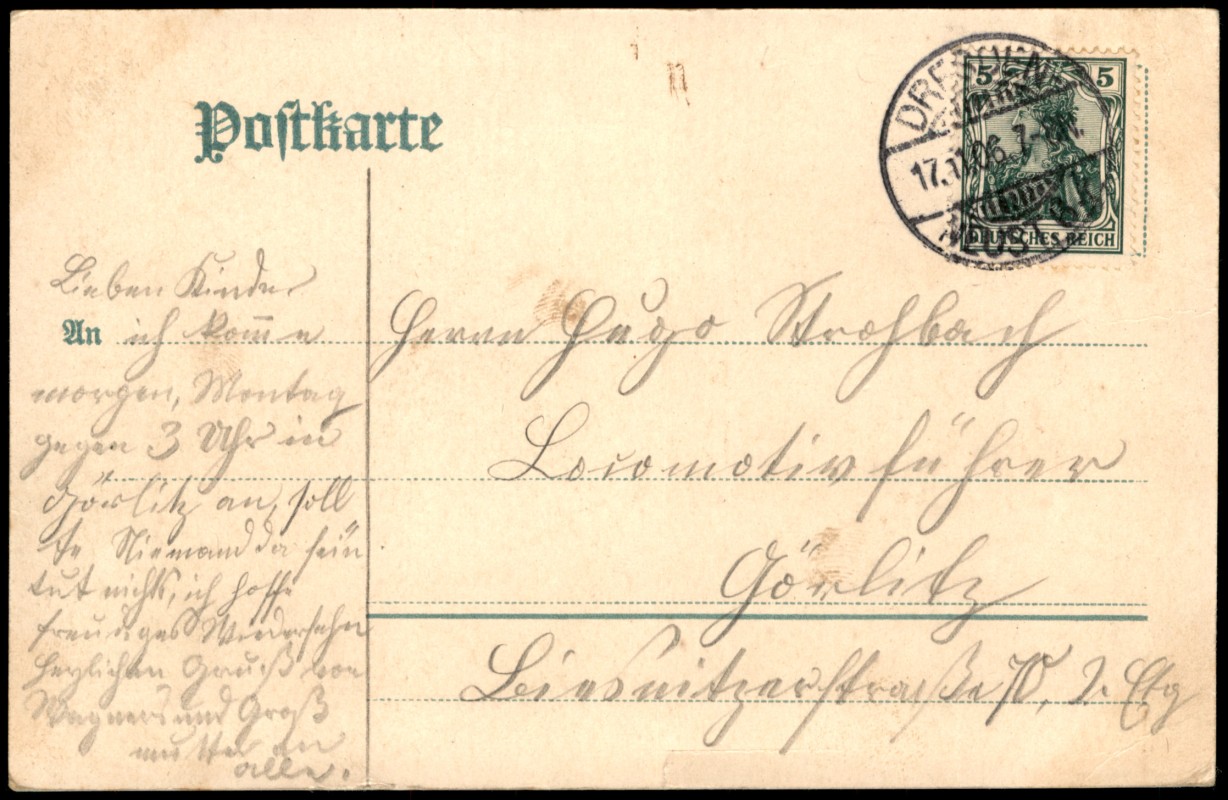 Postkarte
5 5
DEUTSCHES REICH
DRESDEN
17.11.06. 7-8N.
NEUST.
Lieben Kinder
An ich komme
morgen, Montag
gegen 3 Uhr in
Görlitz an, soll
te Niemand da sein
tut nichts, ich hoffe
freudiges Wiedersehn
herzlichen Gruß von
Wagners und Groß
mutter an
alle.
Herrn Hugo Strohbach
Locomotivführer
Görlitz
Biesnitzerstraße 2. Etg